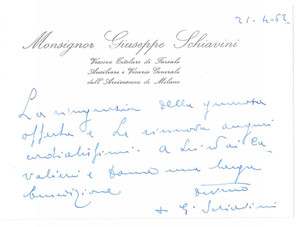 21-4-62
Monsignor Giuseppe Schiavini
Vescovo Titolare di Farsalo
Ausiliare e Vicario Generale
dell'Arcivescovo di Milano
La ringrazia della generosa
offerta e Le rinnova auguri
cordialissimi. a Lei ai Ca-
valieri e dona una larga
benedizione
+ G. Schiavini